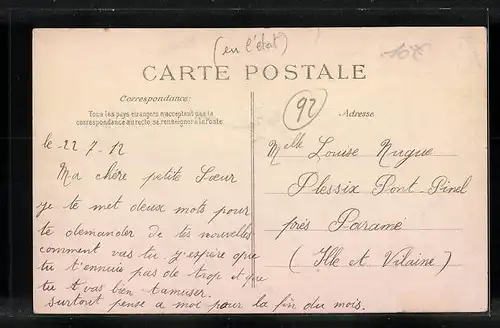 (en l'état)
10€
CARTE POSTALE
Correspondance:
Tous les pays étrangers n'acceptent pas la
correspondance au recto, se renseigner à la Poste
92
Adresse
le 22-7-12
Ma chère petite Sœur
je te met deux mots pour
te demander de tes nouvelles
comment vas tu j'espère que
tu t'ennuie pas de trop et que
tu t vas bien t'amuser.
surtout pense a moi pour la fin du mois.
Melle Louise Nugue
Plessix Pont-Pinel
près Paramé
(Ille et Vilaine)